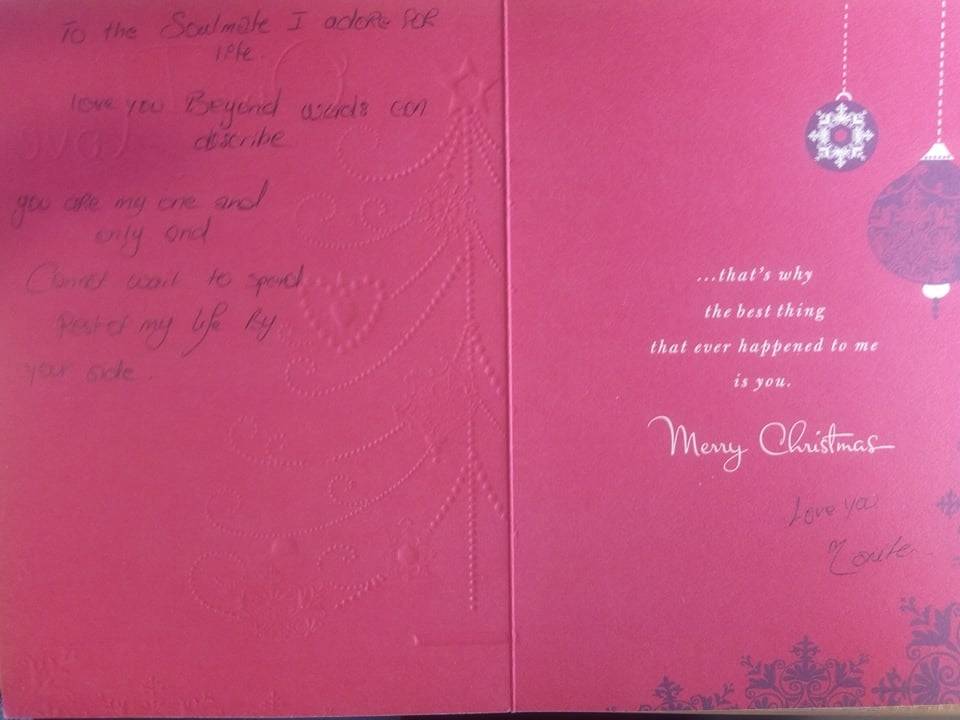 To the Soulmate I adore for
life
love you Beyond words can
discribe
you are my one and
only and
Cannot wait to spend
Rest of my life By
your side.
...that's why
the best thing
that ever happened to me
is you.
Merry Christmas
Love you